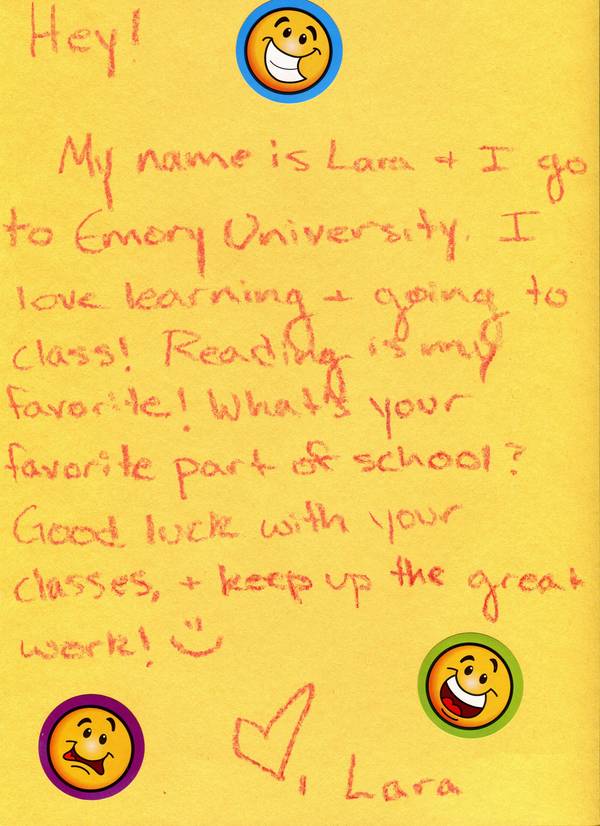 Hey!
My name is Lara + I go
to Emory University. I
love learning + going to
class! Reading is my
favorite! What's your
favorite part of school?
Good luck with your
classes, + keep up the great
work!
, Lara